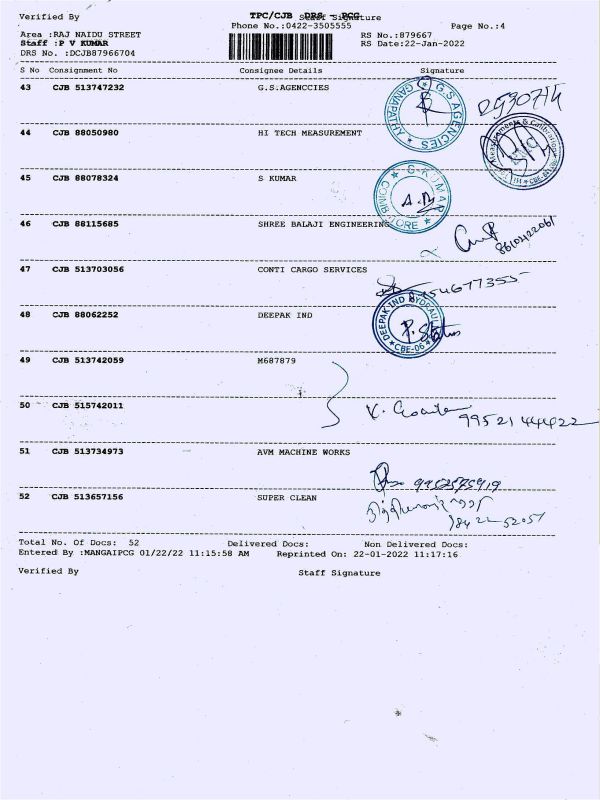 Verified By TPC/CJB DRS - PCG Staff Signature
Phone No.:0422-3505555 Page No.:4
Area :RAJ NAIDU STREET RS No.:879667
Staff :P V KUMAR RS Date:22-Jan-2022
DRS No. :DCJB87966704
S No Consignment No Consignee Details Signature
43 CJB 513747232 G.S.AGENCCIES
G.S AGENCIES GANAPATHY
44 CJB 88050980 HI TECH MEASUREMENT
45 CJB 88078324 S KUMAR
S-KUMAR COIMBATORE
46 CJB 88115685 SHREE BALAJI ENGINEERING
47 CJB 513703056 CONTI CARGO SERVICES
48 CJB 88062252 DEEPAK IND
DEEPAK IND HYDRAULI CBE-06
49 CJB 513742059 M687879
50 CJB 515742011
99521 444422
51 CJB 513734973 AVM MACHINE WORKS
9952575919
52 CJB 513657156 SUPER CLEAN
Total No. Of Docs: 52 Delivered Docs: Non Delivered Docs:
Entered By :MANGAIPCG 01/22/22 11:15:58 AM Reprinted On: 22-01-2022 11:17:16
Verified By Staff Signature